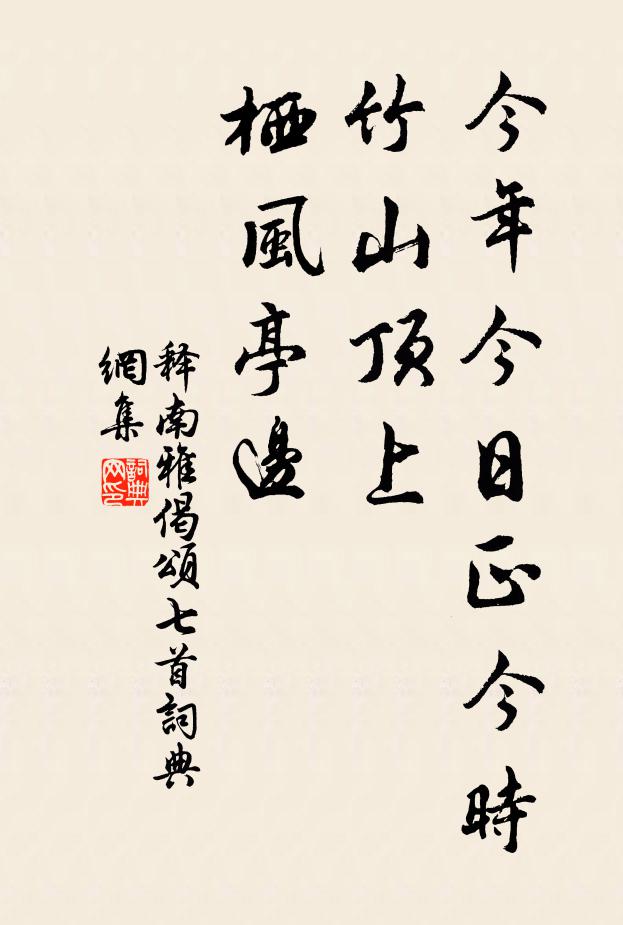 今年今日正今時
竹山頂上
栖風亭邊
释南雅偈頌七首詞典
網集
詞典
网印